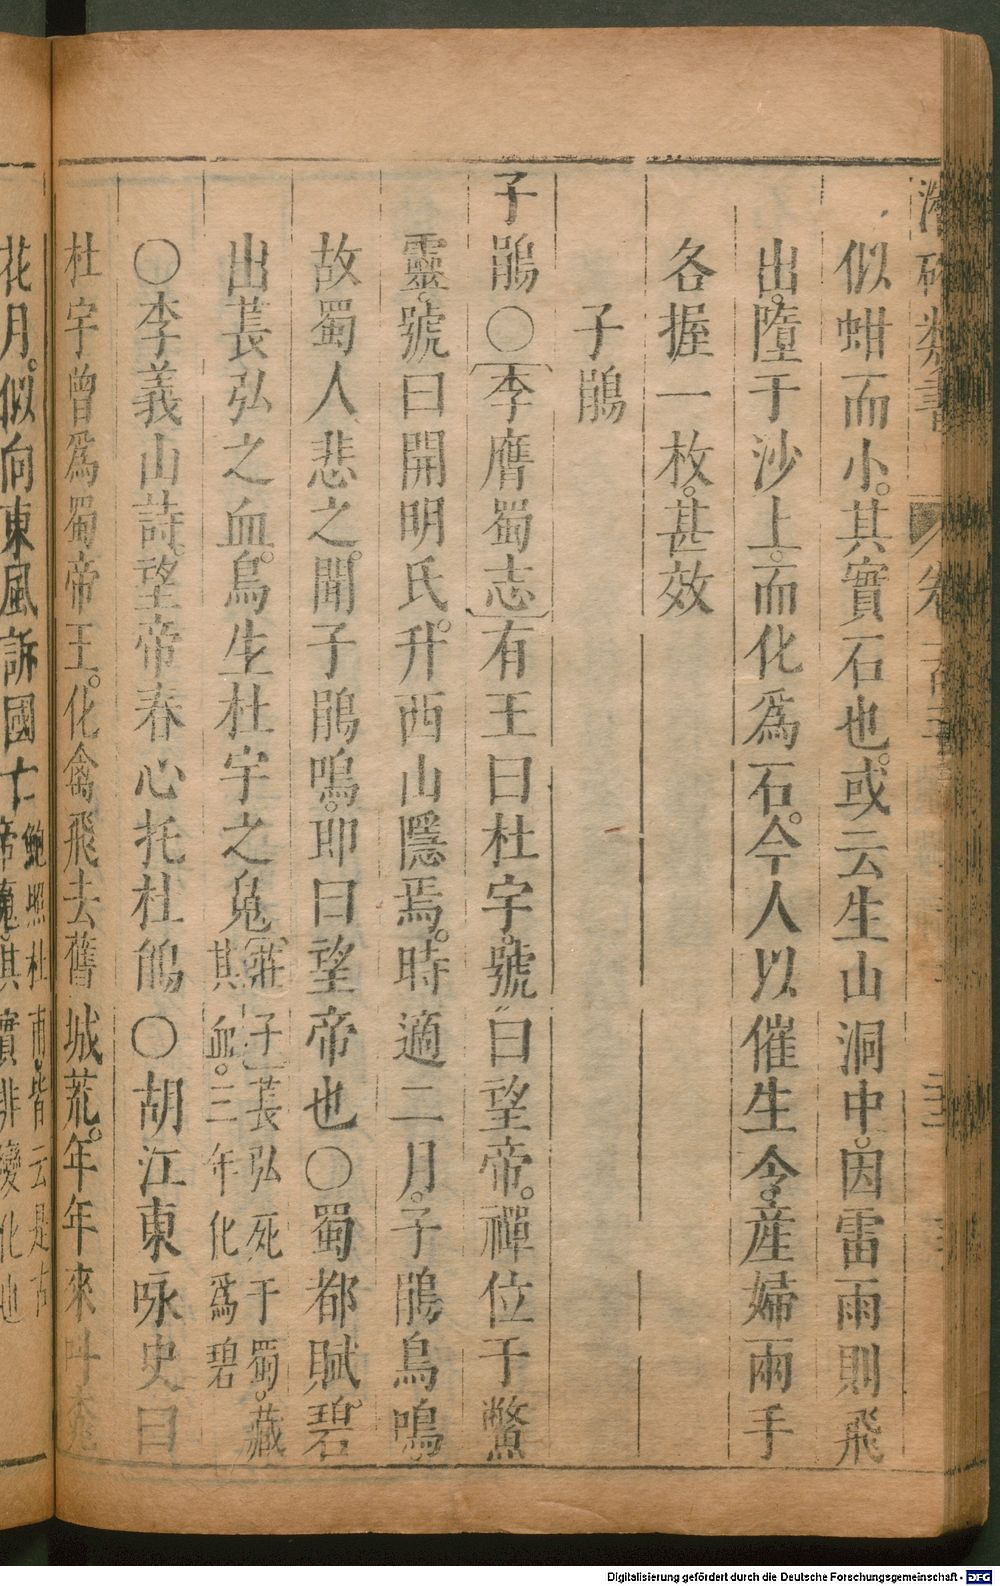 類書
卷
似蚶而小其實石也或云生山洞中因雷雨則飛
出墮于沙上而化爲石今人以催生令產婦兩手
各握一枚甚效
子鵑
子鵑〇李膺蜀志有王曰杜宇號曰望帝禪位于鱉
靈號曰開明氏升西山隱焉時適二月子鵑鳥鳴
故蜀人悲之聞子鵑鳴即曰望帝也〇蜀都賦碧
出萇弘之血鳥生杜宇之魂
莊子萇弘死于蜀藏
其血三年化爲碧
〇李義山詩望帝春心托杜鵑〇胡江東咏史曰
杜宇曾爲蜀帝王化禽飛去舊城荒年年來叫
花月似向東風訴國亡
鮑照杜甫皆云是古
帝魂其實非變化也
Digitalisierung gefördert durch die Deutsche Forschungsgemeinschaft - DFG